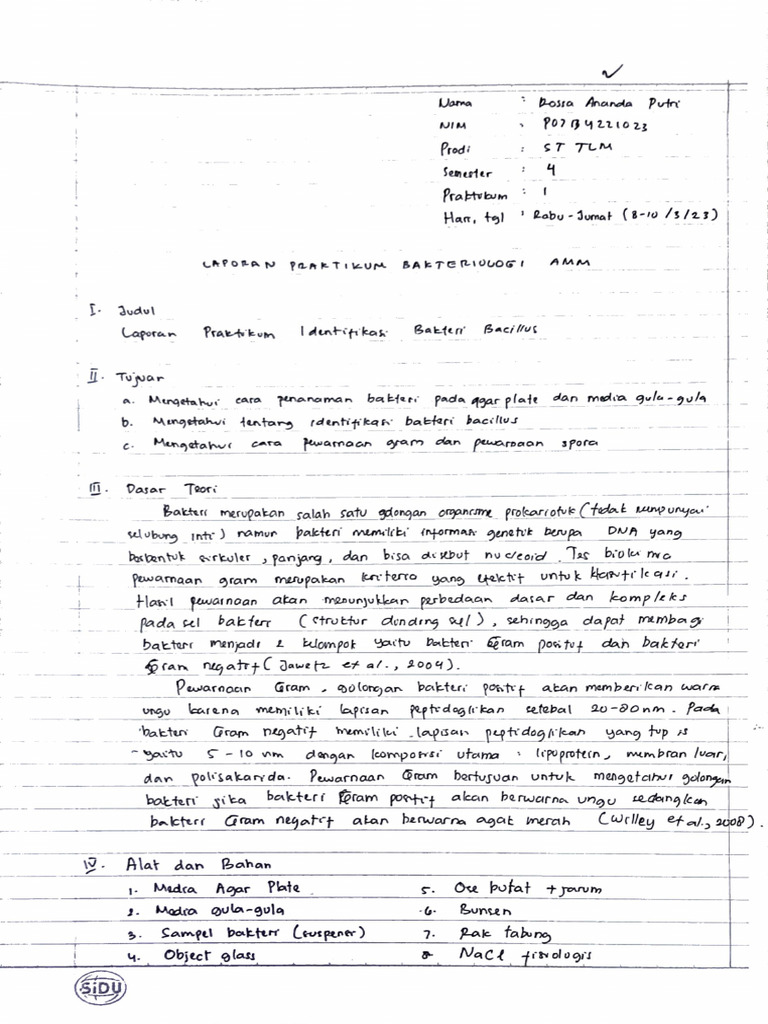 Nama : Rossa Ananda Putri
NIM : P07134221023
Prodi : ST TLM
Semester : 4
Praktikum : 1
Hari, tgl : Rabu - Jumat (8-10 /3/23)
LAPORAN PRAKTIKUM BAKTERIOLOGI AMM
I. Judul
Laporan Praktikum Identifikasi Bakteri Bacillus
II. Tujuan
a. Mengetahui cara penanaman bakteri pada agar plate dan media gula-gula
b. Mengetahui tentang identifikasi bakteri bacillus
c. Mengetahui cara pewarnaan gram dan pewarnaan spora
III. Dasar Teori
Bakteri merupakan salah satu golongan organisme prokariotik (tidak mempunyai
selubung inti) namun bakteri memiliki informasi genetik berupa DNA yang
berbentuk sirkuler, panjang, dan bisa disebut nucleoid. Tes biokimia
pewarnaan gram merupakan kriteria yang efektif untuk klasifikasi.
Hasil pewarnaan akan menunjukkan perbedaan dasar dan kompleks
pada sel bakteri (struktur dinding sel), sehingga dapat membagi
bakteri menjadi 2 kelompok yaitu bakteri Gram positif dan bakteri
Gram negatif (Jawetz et al., 2004).
Pewarnaan Gram, golongan bakteri positif akan memberikan warna
ungu karena memiliki lapisan peptidoglikan setebal 20-80 nm. Pada
bakteri Gram negatif memiliki lapisan peptidoglikan yang tipis
yaitu 5-10 nm dengan komposisi utama : lipoprotein, membran luar,
dan polisakarida. Pewarnaan Gram bertujuan untuk mengetahui golongan
bakteri jika bakteri Gram positif akan berwarna ungu sedangkan
bakteri Gram negatif akan berwarna agak merah (Willey et al., 2008).
IV. Alat dan Bahan
1. Media Agar Plate 5. Ose bulat + jarum
2. Media gula-gula 6. Bunsen
3. Sampel bakteri (suspensi) 7. Rak tabung
4. Object glass 8 NaCl fisiologis
SiDU